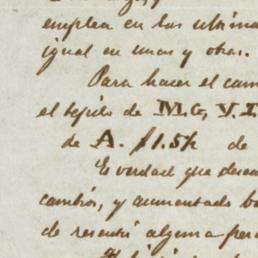 emplea en las ultima
igual en unas y otras.
Para hacer el cam
el tejido de M.G, V.I
de A. 11.5k de
Es verdad que desen
cambios, y aumentado ba
de resentir alguna per